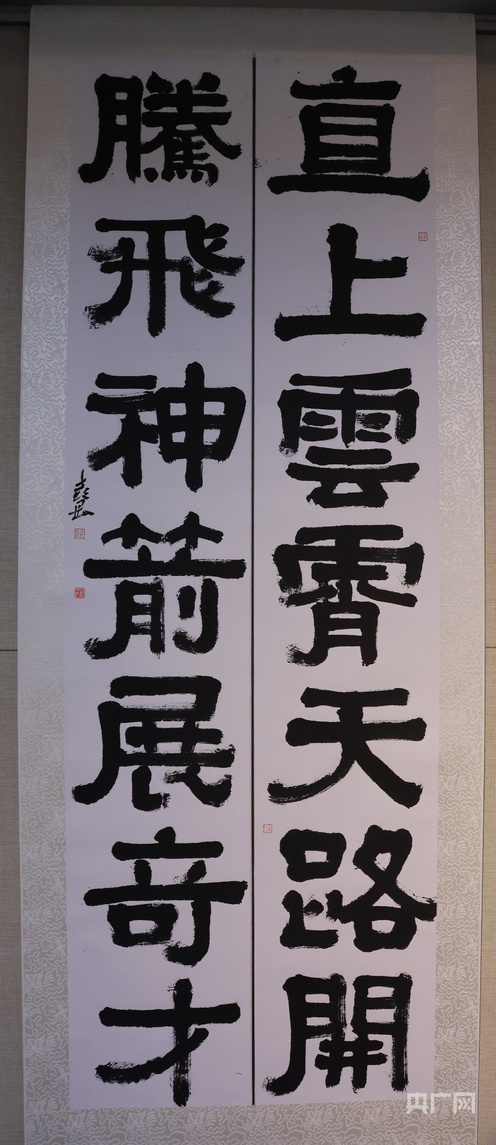 直上雲霄天路開
騰飛神箭展竒才
央广网